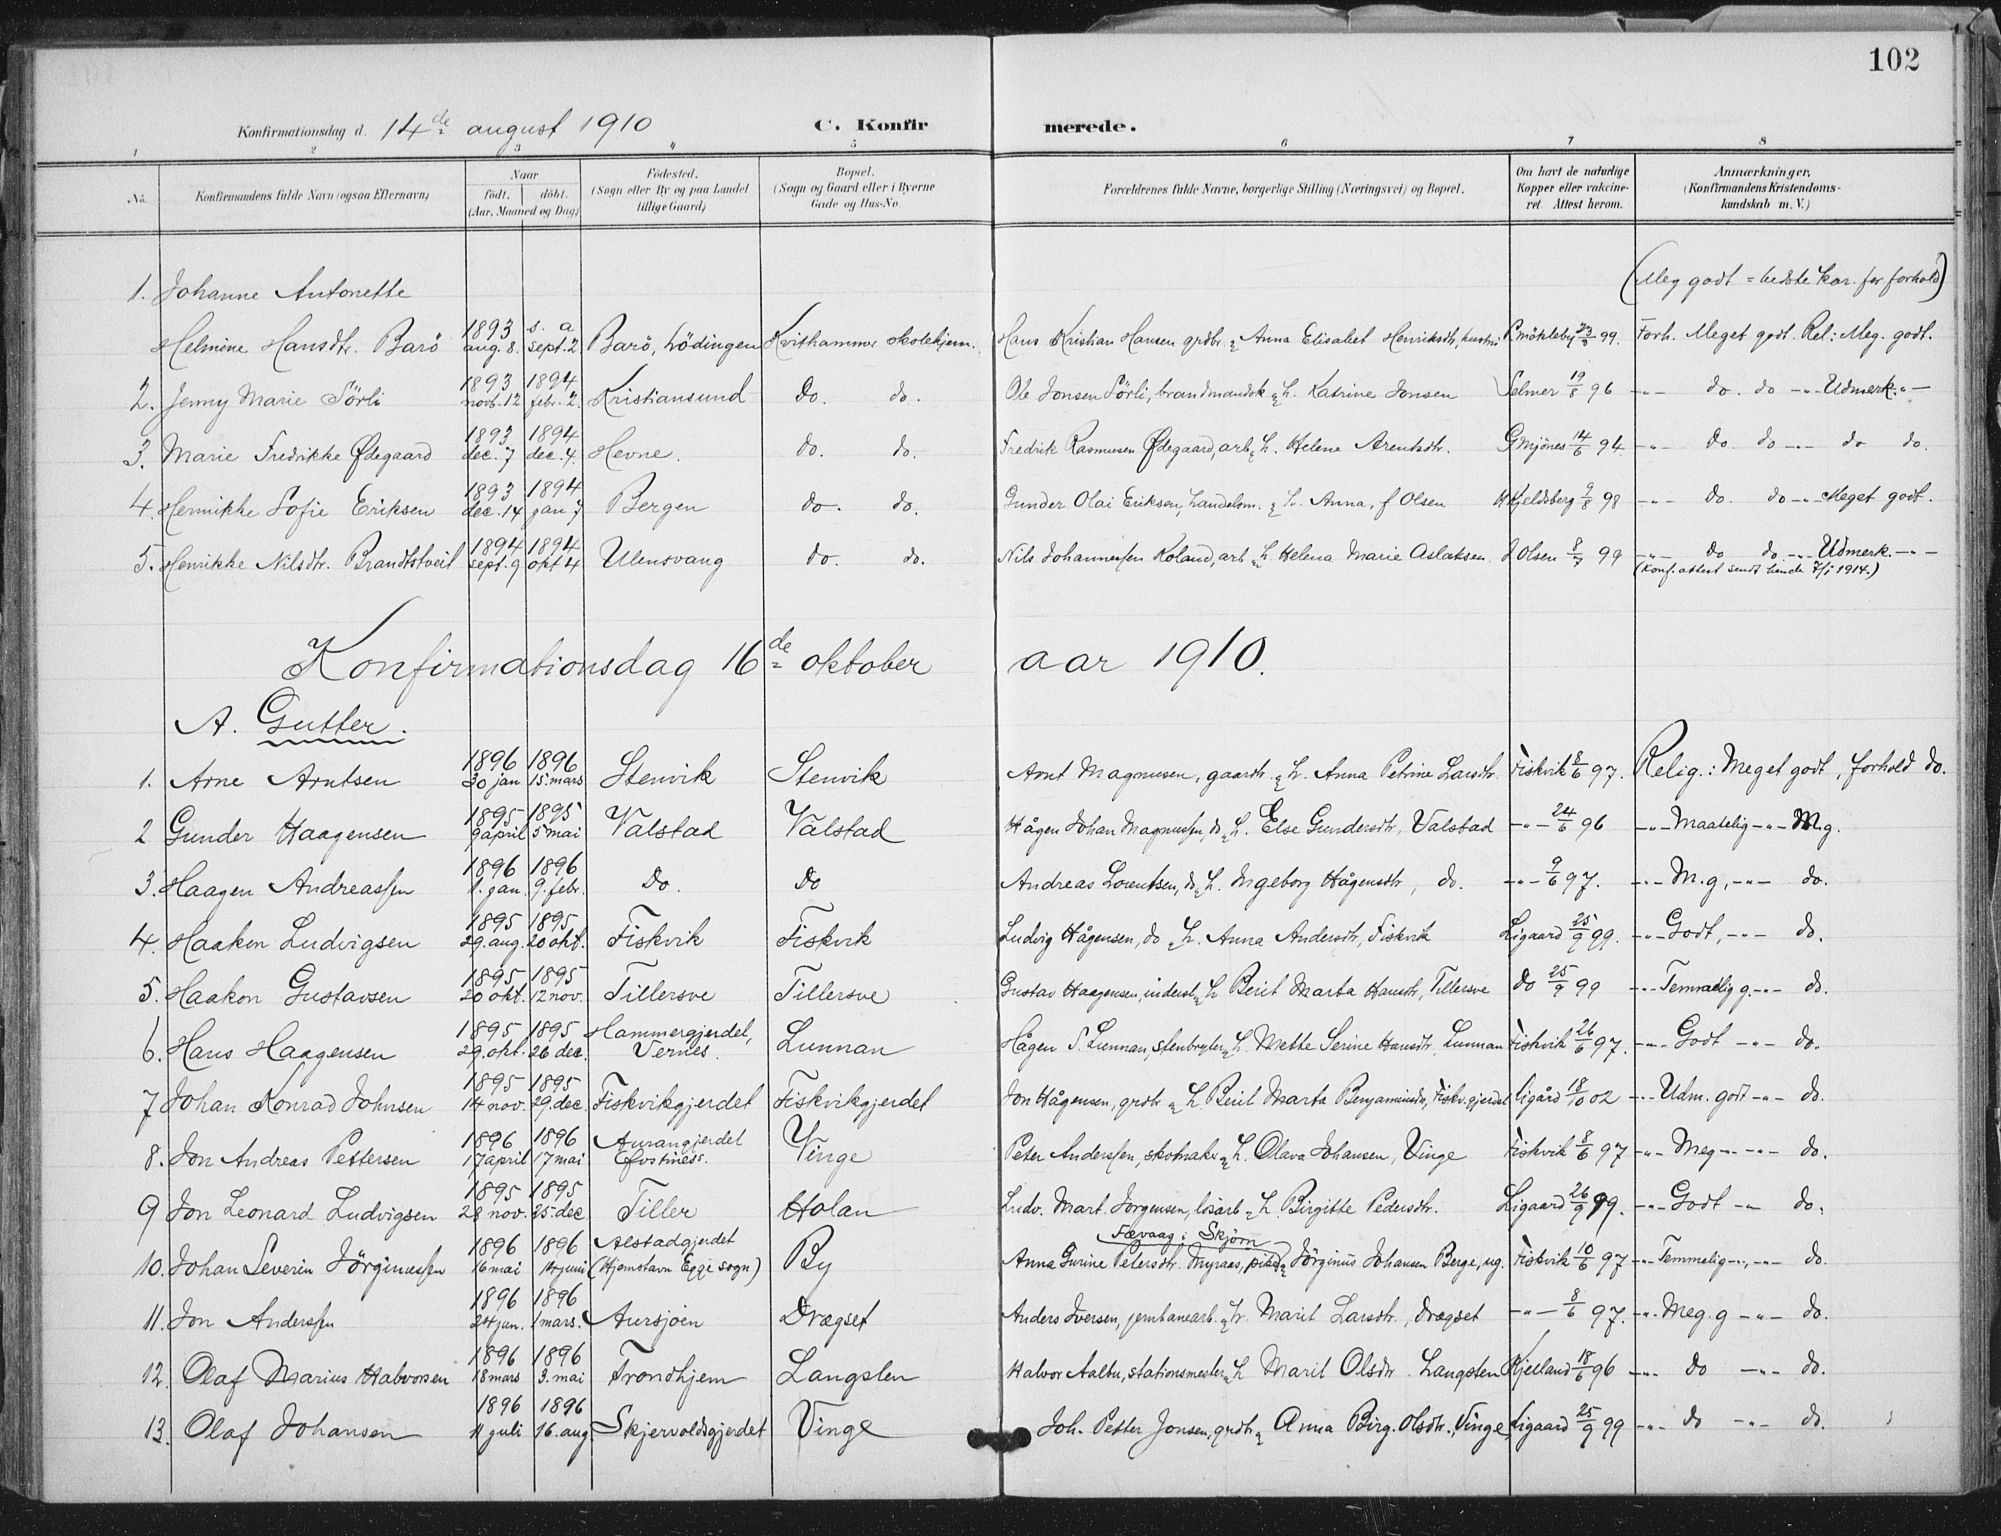 102
Konfirmationsdag d. 14de august 1910 C. Konfirmerede.
1 2 3 4 5 6 7 8
No. Konfirmandens fulde Navn (ogsaa Efternavn) Naar født. døbt. (Aar, Maaned og Dag) Fødested. (Sogn eller By og paa Landet tillige Gaard) Bopæl. (Sogn og Gaard eller i Byerne Gade og Hus-No. Forældrenes fulde Navne, borgerlige Stilling (Næringsvei) og Bopæl. Om havt de naturlige Kopper eller vakcineret. Attest herom. Anmærkninger. (Konfirmandens Kristendomskundskab m. V.)
1. Johanne Antonette (Meg godt = bedste kar. for forhold)
Helmine Hansdtr. Barö 1893 aug. 8. s. a sept. 2 Barö, Lödingen Kvithammer skolehjem. Hans Kristian Hansen grdbr. & Anna Elisabet Henriksdtr, hustru 99. Forh. Meget godt. Rel: Meg. godt.
2. Jenny Marie Sörli 1893 novb. 12 1894 febr. 2. Kristiansund do. do. Ole Jonsen Sörli, brandmandsk & h. Katrine Jonsen Selmer 19/8 96 -"- do. do -"- Udmerk. -"-
3. Marie Fredrikke Ødegaard 1893 dec. 7 1894 dec. 4. Hevne. do. do. Fredrik Rasmusen Ødegaard, arb & h. Helene Arentsdtr. G Mjönes 14/6 94 -"- do. do -"- do do.
4. Hennikke Sofie Eriksen 1893 dec. 14 1894 jan 7 Bergen do. do. Gunder Olai Eriksen, handelsm. & h. Anna, f Olsen H Kjeldsberg 9/8 98 -"- do. do -"- Meget godt.
5. Henrikke Nilsdtr. Brandtstveit 1894 sept. 9 1894 okt 4 Ulensvang do. do. Nils Johannessen Roland, arb & h. Helena Marie Aslaksen. J Olsen 8/7 99 -"- do do -"- Udmerk. -"-
(Konf. attest sendt hende 7/1 1914.)
Konfirmationsdag 16de oktober aar 1910.
A. Gutter.
1. Arne Arntsen 1896 30 jan 1896 15. mars Stenvik Stenvik Arnt Magnusen, gaardbr. & h. Anna Petrine Larsdtr. Fiskvik 8/6 97. Relig.: Meget godt, forhold do.
2 Gunder Haagensen 1895 9 april 1895 5 mai Valstad Valstad Hågen Johan Magnussen, do & h. Else Gundersdtr, Valstad -"- 24/6 96 -"- Maadelig -"- M.g.
3. Haagen Andreassen 1896 1. jan. 1896 9. febr. do. do Andreas Lorentsen, do & h. Ingeborg Hågensdtr, do. -"- 9/6 97. -"- M.g, -"- do.
4. Haakon Ludvigsen 1895 29. aug. 1895 20 okt. Fiskvik Fiskvik Ludvig Hågensen, do & h. Anna Andersdtr, Fiskvik Ligaard 25/9 99. -"- Godt, -"- do.
5. Haakon Gustavsen 1895 20 okt. 1895 12 nov. Tillersve Tillersve Gustav Haagensen, inderst & h Berit Marta Hansdtr, Tillersve do 25/9 99 -"- Temmelig g. -"- do.
6. Hans Haagensen 1895 29. okt. 1895 26 dec. Hammergjerdet, Vernes. Lunnan Hågen S. Lunnan, stenbryter & h. Mette Serine Hansdtr, Lunnan Fiskvik 26/6 97. -"- Godt -"- do.
7 Johan Konrad Johnsen 1895 14 nov. 1895 29. dec Fiskvikgjerdet Fiskvikgjerdet Jon Hågensen, grdbr & h Berit Marta Benjaminsdtr, Fiskv.gjerdet Ligård 18/10 02 -"- Udm. godt -"- do.
8. Jon Andreas Pettersen 1896 17 april 1896 17 mai Aurangjerdet Efvstiness. Vinge Peter Anderssen, skomaker & h. Olava Johansen, Vinge Fiskvik 8/6 97 -"- Meg -"- -"- do.
9 Jon Leonard Ludvigsen 1895 28 nov. 1895 25. dec Tiller Holan Ludv. Mart. Jorgensen, lösarb & h. Birgitte Pedersdtr. Ligaard 26/9 99. -"- Godt -"- do.
Fævaag i Skjørn
10. Johan Severin Jörginussen 1896 16 mai 1896 14 juni Alstadgjerdet (Hjemstavn Egge sogn) By Anna Gurine Petersdtr. Myraas, pike & Jörginus Johansen Berge, ug. Fiskvik 10/6 97 -"- Temmelig -"-, -"- do.
11. Jon Anderssen 1896 24 jan. 1896 1 mars. Aursjöen Drægset Anders Iversen, jernbanearb. & h. Marit Larsdtr., Drægset -"- 8/6 97. -"- Meg. g -"- do.
12. Olaf Marius Halvorsen 1896 18 mars 1896 3. mai Trondhjem Langsten Halvor Aalbu, stationsmester & h Marit Olsdtr. Langsten Kjelland 18/6 96 -"- do -"- do.
13. Olaf Johansen 1896 11 juli 1896 16. aug. Skjervoldsgjerdet Vinge Joh. Petter Jonsen, grdbr & Anna Birg. Olsdtr., Vinge, Ligaard 25/9 99 -"- do -"- do.